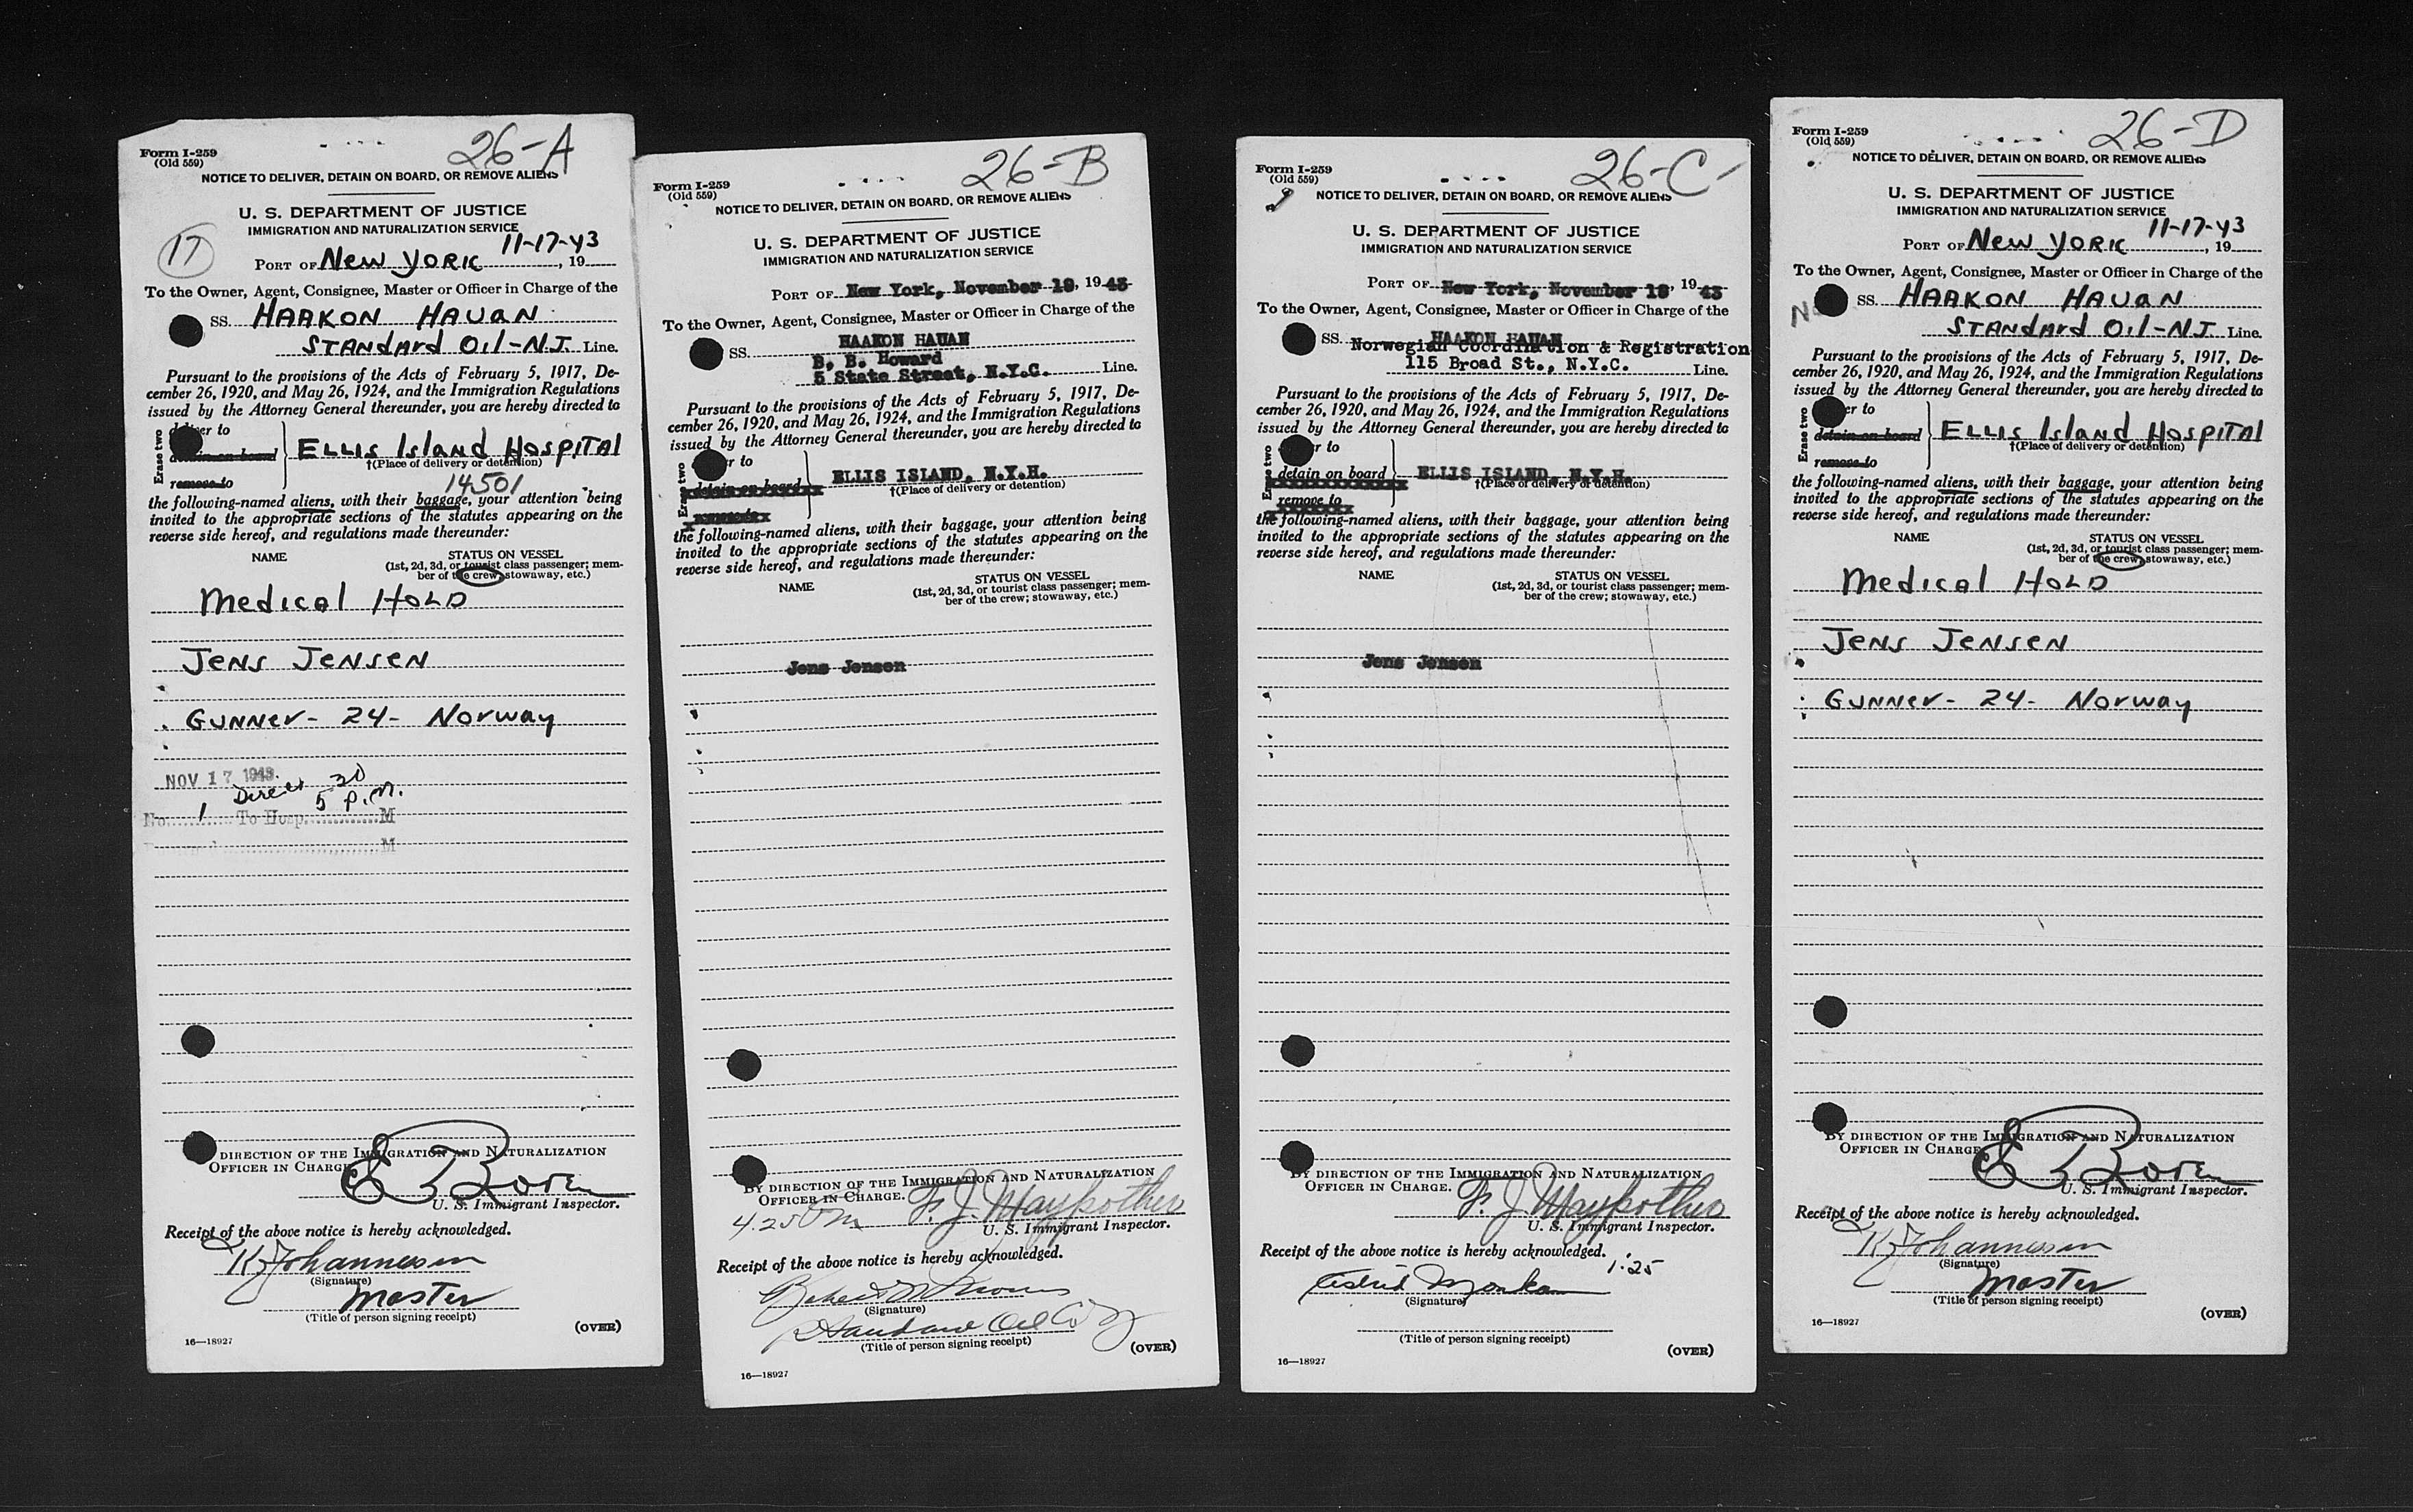 26-A
Form I-259
(Old 559)
NOTICE TO DELIVER, DETAIN ON BOARD, OR REMOVE ALIENS
U. S. DEPARTMENT OF JUSTICE
IMMIGRATION AND NATURALIZATION SERVICE
17
11-17-43
PORT OF New York, 19
To the Owner, Agent, Consignee, Master or Officer in Charge of the
SS. HAAKON HAUAN
STANDARD OIL-N.J. Line.
Pursuant to the provisions of the Acts of February 5, 1917, De-
cember 26, 1920, and May 26, 1924, and the Immigration Regulations
issued by the Attorney General thereunder, you are hereby directed to
Erase two
deliver to
detain on board
ELLIS Island HOSPITAL
†(Place of delivery or detention)
remove to
14501
the following-named aliens, with their baggage, your attention being
invited to the appropriate sections of the statutes appearing on the
reverse side hereof, and regulations made thereunder:
NAME STATUS ON VESSEL
(1st, 2d, 3d, or tourist class passenger; mem-
ber of the crew; stowaway, etc.)
Medical HOLD
JENS JENSEN
GUNNER- 24- Norway
NOV 17 1943.
Direct 5 30 P.M.
No. 1 To Hosp. M
M
DIRECTION OF THE IMMIGRATION AND NATURALIZATION
OFFICER IN CHARGE
U. S. Immigrant Inspector.
Receipt of the above notice is hereby acknowledged.
K Johannessen
(Signature)
Master
(Title of person signing receipt)
(OVER)
16—18927
26-B
Form I-259
(Old 559)
NOTICE TO DELIVER, DETAIN ON BOARD, OR REMOVE ALIENS
U. S. DEPARTMENT OF JUSTICE
IMMIGRATION AND NATURALIZATION SERVICE
PORT OF New York, November 18, 1943
To the Owner, Agent, Consignee, Master or Officer in Charge of the
HAAKON HAUAN
SS. B. B. Howard
5 State Street, N.Y.C. Line.
Pursuant to the provisions of the Acts of February 5, 1917, De-
cember 26, 1920, and May 26, 1924, and the Immigration Regulations
issued by the Attorney General thereunder, you are hereby directed to
Erase two
r to
detain on board
ELLIS ISLAND, N.Y.H.
†(Place of delivery or detention)
the following-named aliens, with their baggage, your attention being
invited to the appropriate sections of the statutes appearing on the
reverse side hereof, and regulations made thereunder:
NAME STATUS ON VESSEL
(1st, 2d, 3d, or tourist class passenger; mem-
ber of the crew; stowaway, etc.)
Jens Jensen
BY DIRECTION OF THE IMMIGRATION AND NATURALIZATION
OFFICER IN CHARGE.
4.25 F. J. Maypother
U. S. Immigrant Inspector.
Receipt of the above notice is hereby acknowledged.
(Signature)
Standard Oil Co NJ
(Title of person signing receipt)
(OVER)
16—18927
26-C
Form I-259
(Old 559)
NOTICE TO DELIVER, DETAIN ON BOARD, OR REMOVE ALIENS
U. S. DEPARTMENT OF JUSTICE
IMMIGRATION AND NATURALIZATION SERVICE
PORT OF New York, November 18, 1943
To the Owner, Agent, Consignee, Master or Officer in Charge of the
SS. HAAKON HAUAN
Norwegian Coordination & Registration
115 Broad St., N.Y.C. Line.
Pursuant to the provisions of the Acts of February 5, 1917, De-
cember 26, 1920, and May 26, 1924, and the Immigration Regulations
issued by the Attorney General thereunder, you are hereby directed to
Erase two
r to
detain on board
ELLIS ISLAND, N.Y.H.
†(Place of delivery or detention)
remove to
the following-named aliens, with their baggage, your attention being
invited to the appropriate sections of the statutes appearing on the
reverse side hereof, and regulations made thereunder:
NAME STATUS ON VESSEL
(1st, 2d, 3d, or tourist class passenger; mem-
ber of the crew; stowaway, etc.)
Jens Jensen
BY DIRECTION OF THE IMMIGRATION AND NATURALIZATION
OFFICER IN CHARGE.
F. J. Maypother
U. S. Immigrant Inspector.
Receipt of the above notice is hereby acknowledged.
1:25
(Signature)
(Title of person signing receipt)
(OVER)
16—18927
26-D
Form I-259
(Old 559)
NOTICE TO DELIVER, DETAIN ON BOARD, OR REMOVE ALIENS
U. S. DEPARTMENT OF JUSTICE
IMMIGRATION AND NATURALIZATION SERVICE
11-17-43
PORT OF New York, 19
To the Owner, Agent, Consignee, Master or Officer in Charge of the
SS. HAAKON HAUAN
STANDARD OIL-N.J. Line.
Pursuant to the provisions of the Acts of February 5, 1917, De-
cember 26, 1920, and May 26, 1924, and the Immigration Regulations
issued by the Attorney General thereunder, you are hereby directed to
Erase two
er to
detain on board
ELLIS Island HOSPITAL
†(Place of delivery or detention)
remove to
the following-named aliens, with their baggage, your attention being
invited to the appropriate sections of the statutes appearing on the
reverse side hereof, and regulations made thereunder:
NAME STATUS ON VESSEL
(1st, 2d, 3d, or tourist class passenger; mem-
ber of the crew; stowaway, etc.)
Medical HOLD
JENS JENSEN
GUNNER- 24- Norway
BY DIRECTION OF THE IMMIGRATION AND NATURALIZATION
OFFICER IN CHARGE
U. S. Immigrant Inspector.
Receipt of the above notice is hereby acknowledged.
K Johannessen
(Signature)
Master
(Title of person signing receipt)
(OVER)
16—18927